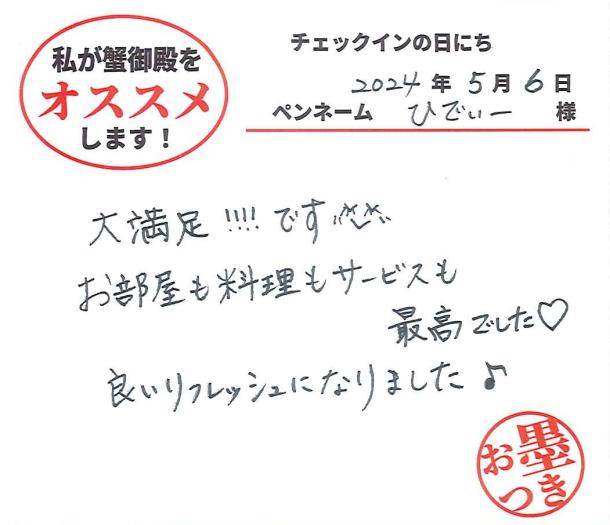 私が蟹御殿を
オススメ
します！
チェックインの日にち
2024年5月6日
ペンネーム ひでぃー 様
大満足!!!!です^^
お部屋も料理もサービスも
最高でした♡
良いリフレッシュになりました♪
お墨
つき